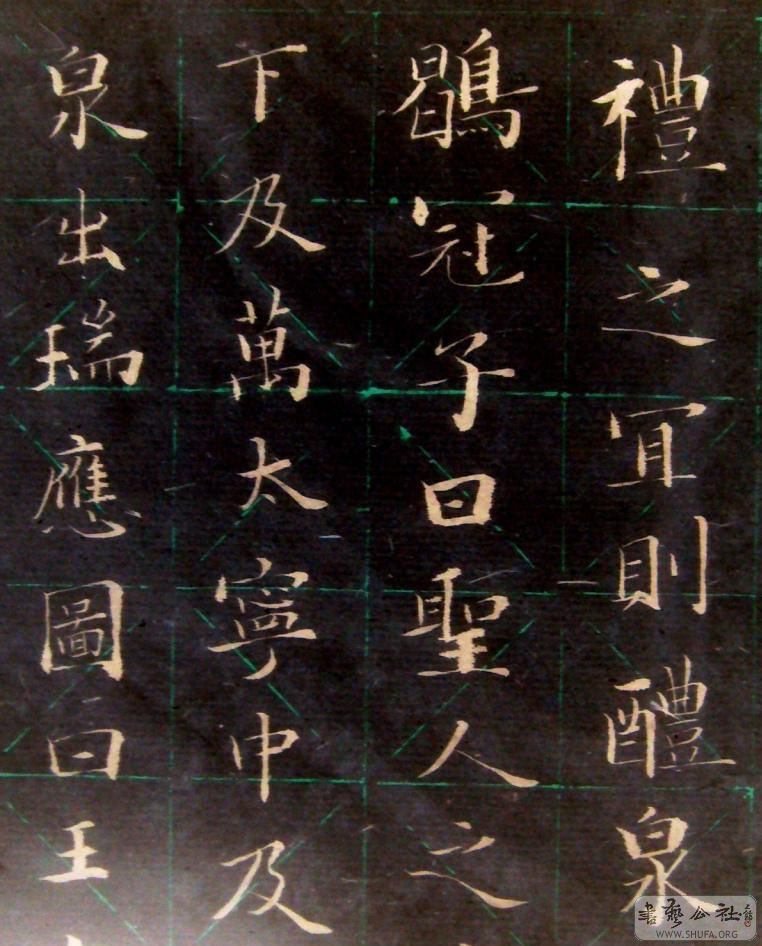 禮之宜則醴泉
鶡冠子曰聖人之
下及萬太寧中及
泉出瑞應圖曰王
書藝公社
WWW.SHUFA.ORG